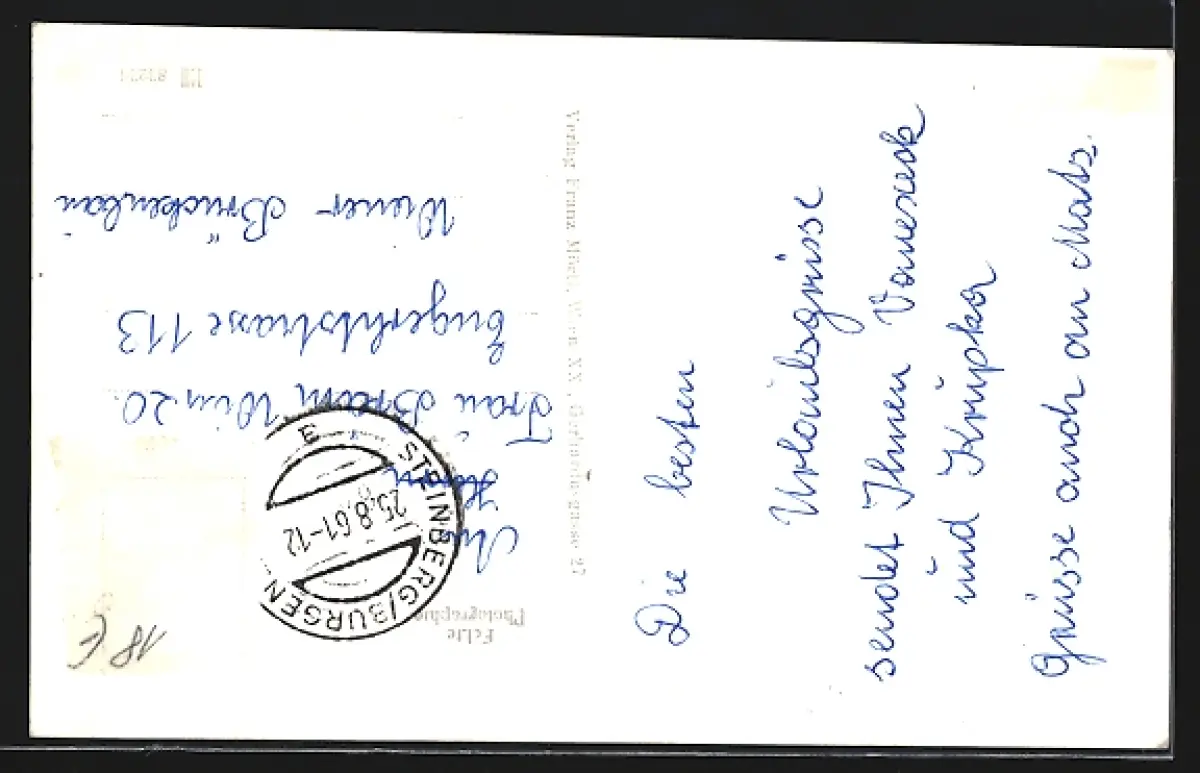 Die besten
Urlaubsgrüsse
sendet Ihnen Vanecek
und Krupka
Grüsse auch an Mats.
Echte
Photographie
An
Frau Wien 20.
Engerthstrasse 113
Wiener Brückenbau
STEINBERG/BURGENL
25.8.61-12
E
Verlag Franz Mörtl, Wien XX, Gerhardusgasse 27
18 €